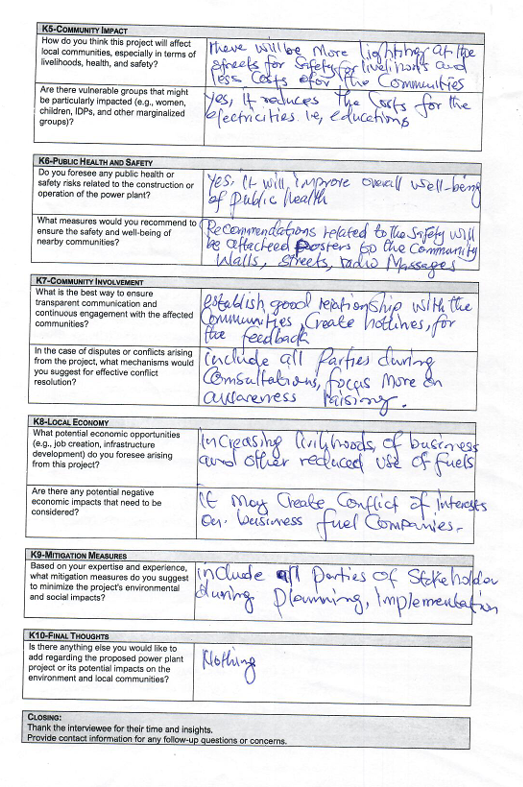 K5-COMMUNITY IMPACT
How do you think this project will affect
local communities, especially in terms of
livelihoods, health, and safety?
there will be more lighting at the
streets for safety for livelihoods and
less costs for the Communities
Are there vulnerable groups that might
be particularly impacted (e.g., women,
children, IDPs, and other marginalized
groups)?
Yes, it reduces the costs for the
electricities i.e, educations
K6-PUBLIC HEALTH AND SAFETY
Do you foresee any public health or
safety risks related to the construction or
operation of the power plant?
Yes, it will improve overall well-being
of public health
What measures would you recommend to
ensure the safety and well-being of
nearby communities?
Recommendations related to the safety will
be attacteed posters to the community
walls, streets, radio Massages
K7-COMMUNITY INVOLVEMENT
What is the best way to ensure
transparent communication and
continuous engagement with the affected
communities?
establish good relationship with the
Communities, Create hotlines, for
the feedback
In the case of disputes or conflicts arising
from the project, what mechanisms would
you suggest for effective conflict
resolution?
include all Parties during
Consultations, focus more on
awareness raising.
K8-LOCAL ECONOMY
What potential economic opportunities
(e.g., job creation, infrastructure
development) do you foresee arising
from this project?
increasing livelihoods, of business
and other reduced use of fuels
Are there any potential negative
economic impacts that need to be
considered?
It may Create Conflict of interests
on business fuel Companies.
K9-MITIGATION MEASURES
Based on your expertise and experience,
what mitigation measures do you suggest
to minimize the project's environmental
and social impacts?
include all parties of Stakeholder
during planning, implementation
K10-FINAL THOUGHTS
Is there anything else you would like to
add regarding the proposed power plant
project or its potential impacts on the
environment and local communities?
Nothing
CLOSING:
Thank the interviewee for their time and insights.
Provide contact information for any follow-up questions or concerns.